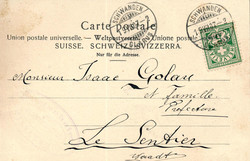 SCHWANDEN
Carte Postale
Union postale universelle. — Weltpostverein. — Unione postale
SUISSE. SCHWEIZ. SVIZZERA.
Nur für die Adresse
Monsieur Isaac Golay
et Famille
Préfecture
Le Sentier
Vaud